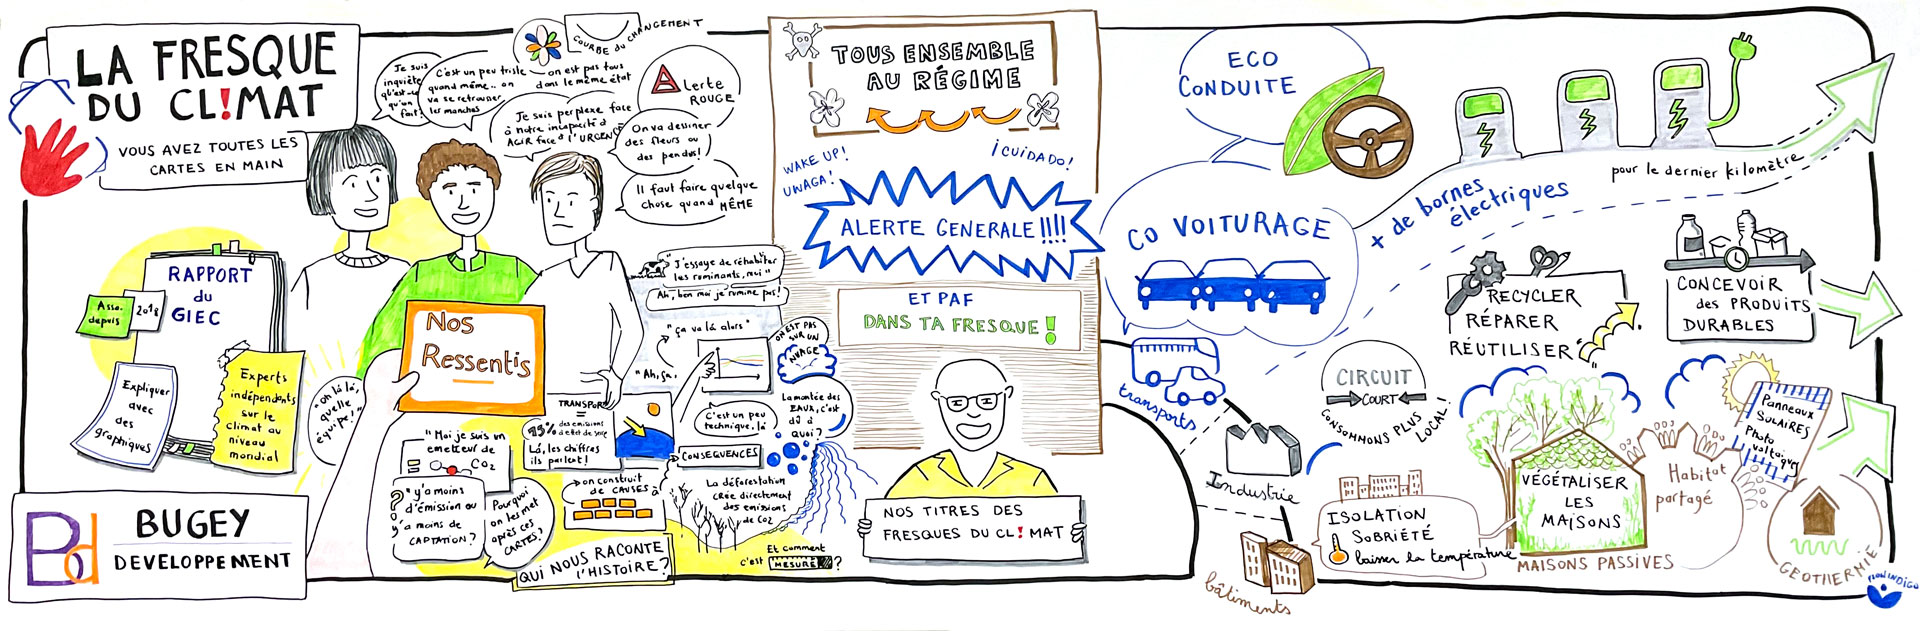 LA FRESQUE
DU CL!MAT
VOUS AVEZ TOUTES LES
CARTES EN MAIN
RAPPORT
du
GIEC
Asso.
depuis
2018
Expliquer
avec
des
graphiques
Experts
indépendants
sur le
climat au
niveau
mondial
BUGEY
DEVELOPPEMENT
Je suis
inquiète
qu'est-ce
qu'on
fait?
C'est un peu triste
quand même.. on
va se retrouver
les manchots
on est pas tous
dans le même état
COURBE DU CHANGEMENT
Je suis perplexe face
à notre incapacité à
AGIR face à l'URGENCE
Alerte
ROUGE
On va dessiner
des fleurs ou
des pendus!
Il faut faire quelque
chose quand MÊME
Nos
Ressentis
"oh là là,
quelle
équipe!"
"J'essaye de réhabiliter
les ruminants, moi"
Ah, bon moi je rumine pas!
"ça va là alors"
"Ah, ça,
ON EST PAS
SUR UN
NUAGE
TRANSPORT
=
15% des emissions
de Get de serre
Là, les chiffres
ils parlent!
C'est un peu
technique, là
La montée des
EAUX, c'est
dû à
quoi?
"Moi je suis un
emetteur de
CO2
? "y'a moins
d'émission ou
y'a moins de
CAPTATION?
Pourquoi
on les met
après ces
CARTES?
on construit
de CAUSES à
CONSEQUENCES
La déforestation
crée directement
des emissions
de CO2
QUI NOUS RACONTE
l'HISTOIRE?
Et comment
c'est MESURÉ ?
TOUS ENSEMBLE
AU RÉGIME
WAKE UP!
UWAGA!
¡CUIDADO!
ALERTE GENERALE!!!!
ET PAF
DANS TA FRESQUE!
NOS TITRES DES
FRESQUES DU CL!MAT
ECO
CONDUITE
CO VOITURAGE
+ de bornes
électriques
pour le dernier kilomètre
transports
Industrie
bâtiments
CIRCUIT
COURT
CONSOMMONS PLUS
LOCAL!
RECYCLER
RÉPARER
RÉUTILISER
CONCEVOIR
des PRODUITS
DURABLES
ISOLATION
SOBRIÉTÉ
baisser la température
VÉGÉTALISER
LES
MAISONS
MAISONS PASSIVES
Habitat
partagé
Panneaux
Solaires
Photo
voltaïques
GEOTHERMIE
FLOW INDIGO